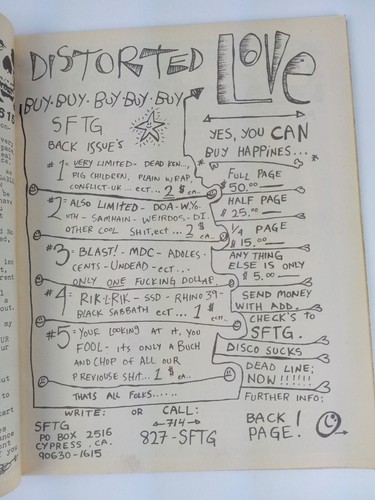 DISTORTED LOVE
BUY·BUY·BUY·BUY·BUY
SFTG
BACK ISSUE'S
#1= VERY LIMITED- DEAD KEN...,
PIG CHILDREN, PLAIN WRAP,
CONFLICT-UK... ECT... 2 $ EA..
#2= ALSO LIMITED- DOA- W.%.
YTH- SAMHAIN- WEIRDOS- D.I.
OTHER COOL SHIT, ECT... 2 $ EA..
#3= BLAST!- MDC- ADOLES-
CENTS- UNDEAD- ECT...-
ONLY ONE FUCKING DOLLAR.
#4= RIK-L-RIK- SSD- RHINO 39-
BLACK SABBATH ECT... 1 $ EA..
#5= YOUR LOOKING AT IT, YOU
FOOL- ITS ONLY A BUCH
AND CHOP OF ALL OUR
PREVIOUSE SHIT... 1 $ EA..
THATS ALL FOLKS......
YES, YOU CAN
BUY HAPPINES...
FULL PAGE
$50.00
HALF PAGE
$25.00
1/4 PAGE
$15.00
ANY THING
ELSE IS ONLY
$5.00
SEND MONEY
WITH ADD.
CHECK'S TO
SFTG.
DISCO SUCKS
DEAD LINE;
NOW!!!!!!
FURTHER INFO:
BACK!
PAGE.
WRITE: OR CALL:
SFTG
PO BOX 2516
CYPRESS, CA.
90630-1615
714
827-SFTG